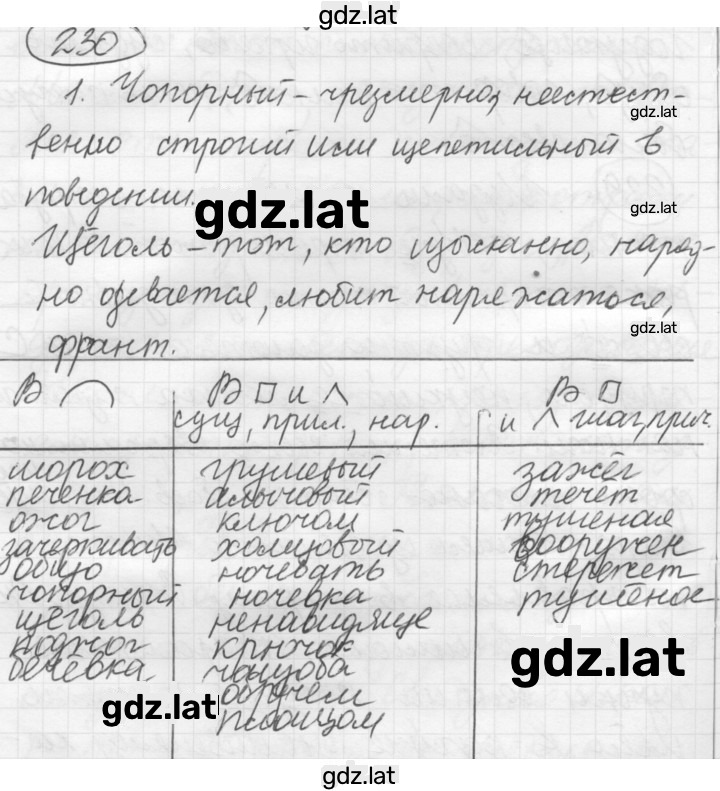 gdz.lat
230
1. Чопорный – чрезмерно, неестест-
gdz.lat
венно строгий или щепетильный в
поведении.
gdz.lat
gdz.lat
Щёголь – тот, кто изысканно, наряд-
но одевается, любит наряжаться,
gdz.lat
франт.
В ⌒ В □ и ^ В □
сущ, прил., нар. и ^ глаг, прич.
шорох грушевый зажёг
печенка алычовый течёт
ожог ключом тушеная
зачеркивать холщовый вооружен
общо ночевать стережет
чопорный ночевка тушёное
щёголь ненавидяще
поджог ключок
gdz.lat
бечёвка чащоба
gdz.lat
обручем
плющом
gdz.lat